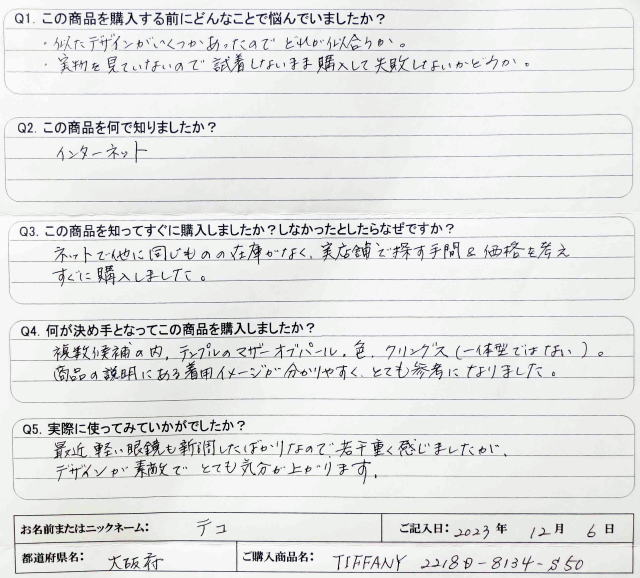 Q1. この商品を購入する前にどんなことで悩んでいましたか？
・似たデザインがいくつかあったので どれが似合うか。
・実物を見ていないので 試着しないまま購入して失敗しないかどうか。
Q2. この商品を何で知りましたか？
インターネット
Q3. この商品を知ってすぐに購入しましたか？しなかったとしたらなぜですか？
ネットで他に同じものの在庫がなく、実店舗で探す手間&価格を考え
すぐに購入しました。
Q4. 何が決め手となってこの商品を購入しましたか？
複数候補の内、テンプルのマザーオブパール、色、クリングス（一体型ではない）。
商品の説明にある着用イメージが分かりやすく、とても参考になりました。
Q5. 実際に使ってみていかがでしたか？
最近軽い眼鏡も新調したばかりなので 若干重く感じましたが、
デザインが素敵で とても気分が上がります。
お名前またはニックネーム： テコ ご記入日：2023年 12月 6日
都道府県名： 大阪府 ご購入商品名： TIFFANY 2218D-8134-S50